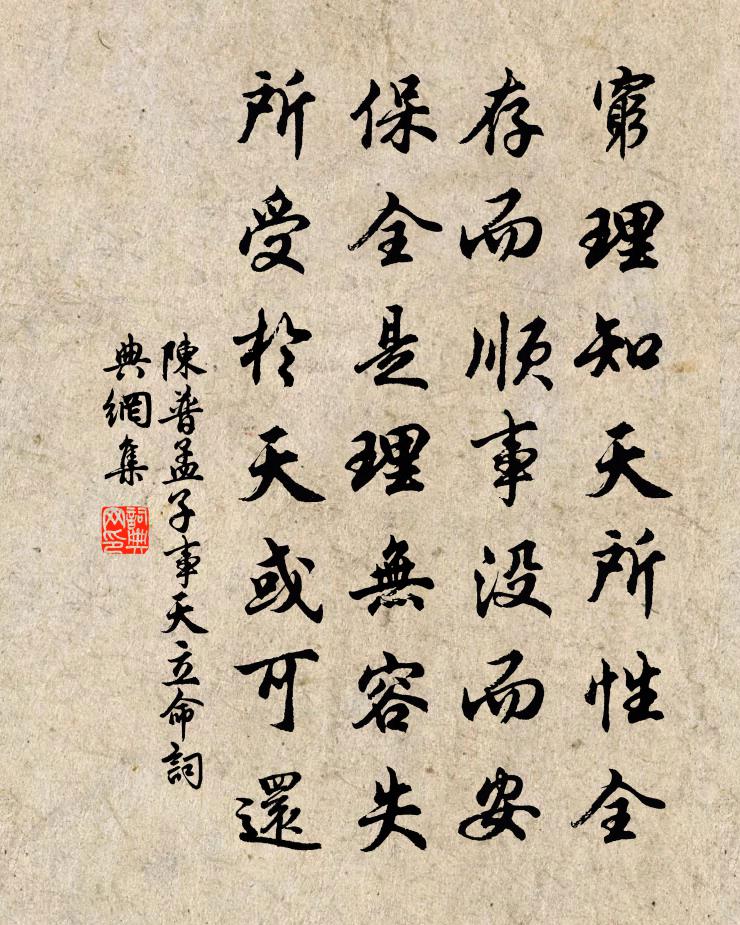 窮理知天所性全
存而順事没而安
保全是理無容失
所受於天或可還
陳普孟子事天立命詞
典網集
詞典
网印